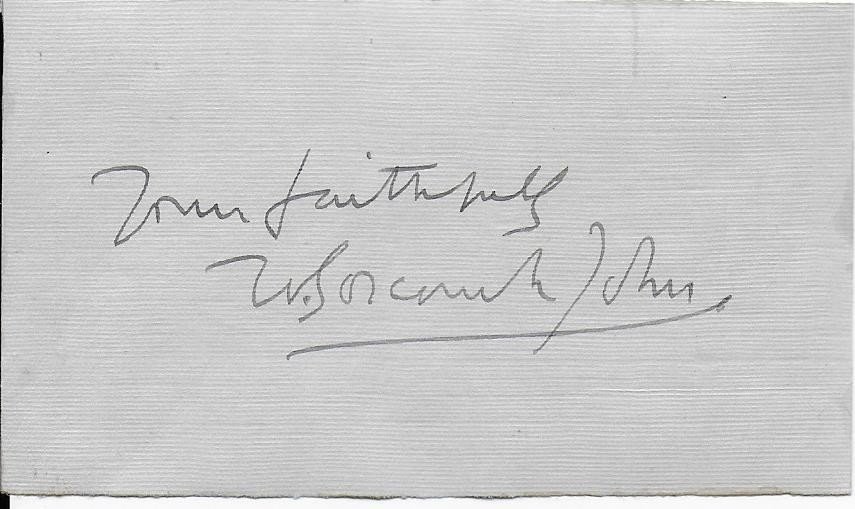 Yours faithfully
W. Goscombe John.